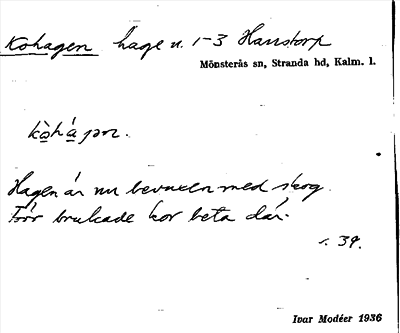 Kohagen hage u. 1-3 Hanstorp
Mönsterås sn, Stranda hd, Kalm. l.
kòhá̱gən.
Hagen är nu bevuxen med skog.
Förr brukade kor beta där.
s. 39.
Ivar Modéer 1936